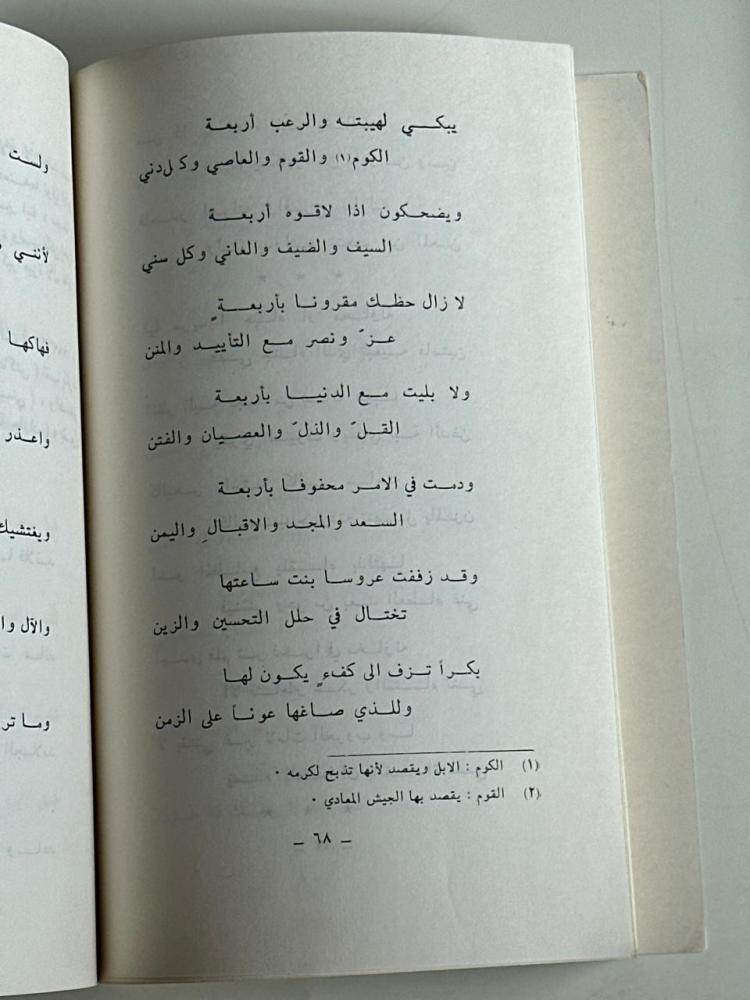 يبكي لهيبته والرعب أربعة
الكوم(١) والقوم والعاصي وكل دني
ويضحكون اذا لاقوه أربعة
السيف والضيف والعاني وكل سني
لا زال حظك مقرونا بأربعةٍ
عزّ ونصر مع التأييد والمنن
ولا بليت مع الدنيا بأربعة
القلّ والذلّ والعصيان والفتن
ودمت في الامر محفوفا بأربعة
السعد والمجد والاقبالِ واليمن
وقد زففت عروسا بنت ساعتها
تختال في حلل التحسين والزين
بكراً تزف الى كفءٍ يكون لها
وللذي صاغها عوناً على الزمن
(١) الكوم : الابل ويقصد لأنها تذبح لكرمه ٠
(٢) القوم : يقصد بها الجيش المعادي ٠
ـ ٦٨ ـ
ولست
لأنني
فهاكها
واعذر
ويغتشيك
والآل وا
وما تر